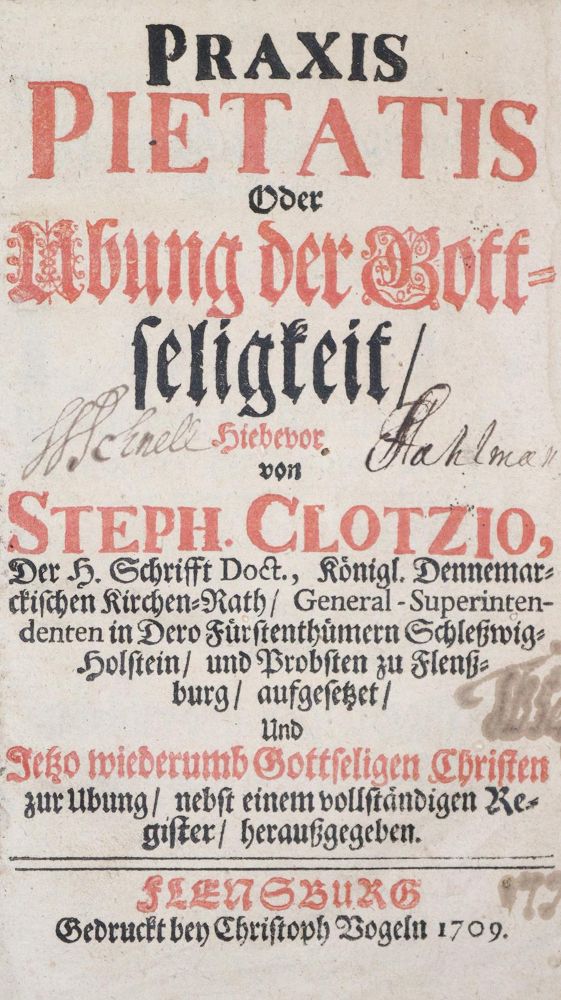 PRAXIS
PIETATIS
Oder
Ubung der Gott-
seligkeit/
Schnell Hiebevor Stahlman
von
STEPH. CLOTZIO,
Der H. Schrifft Doct., Königl. Dennemar-
ckischen Kirchen-Rath/ General-Superinten-
denten in Dero Fürstenthümern Schleßwig-
Holstein/ und Probsten zu Flenß-
burg/ aufgesetzet/
Und
Jetzo wiederumb Gottseligen Christen
zur Ubung/ nebst einem vollständigen Re-
gister/ heraußgegeben.
FLENSBURG
Gedruckt bey Christoph Vogeln 1709.